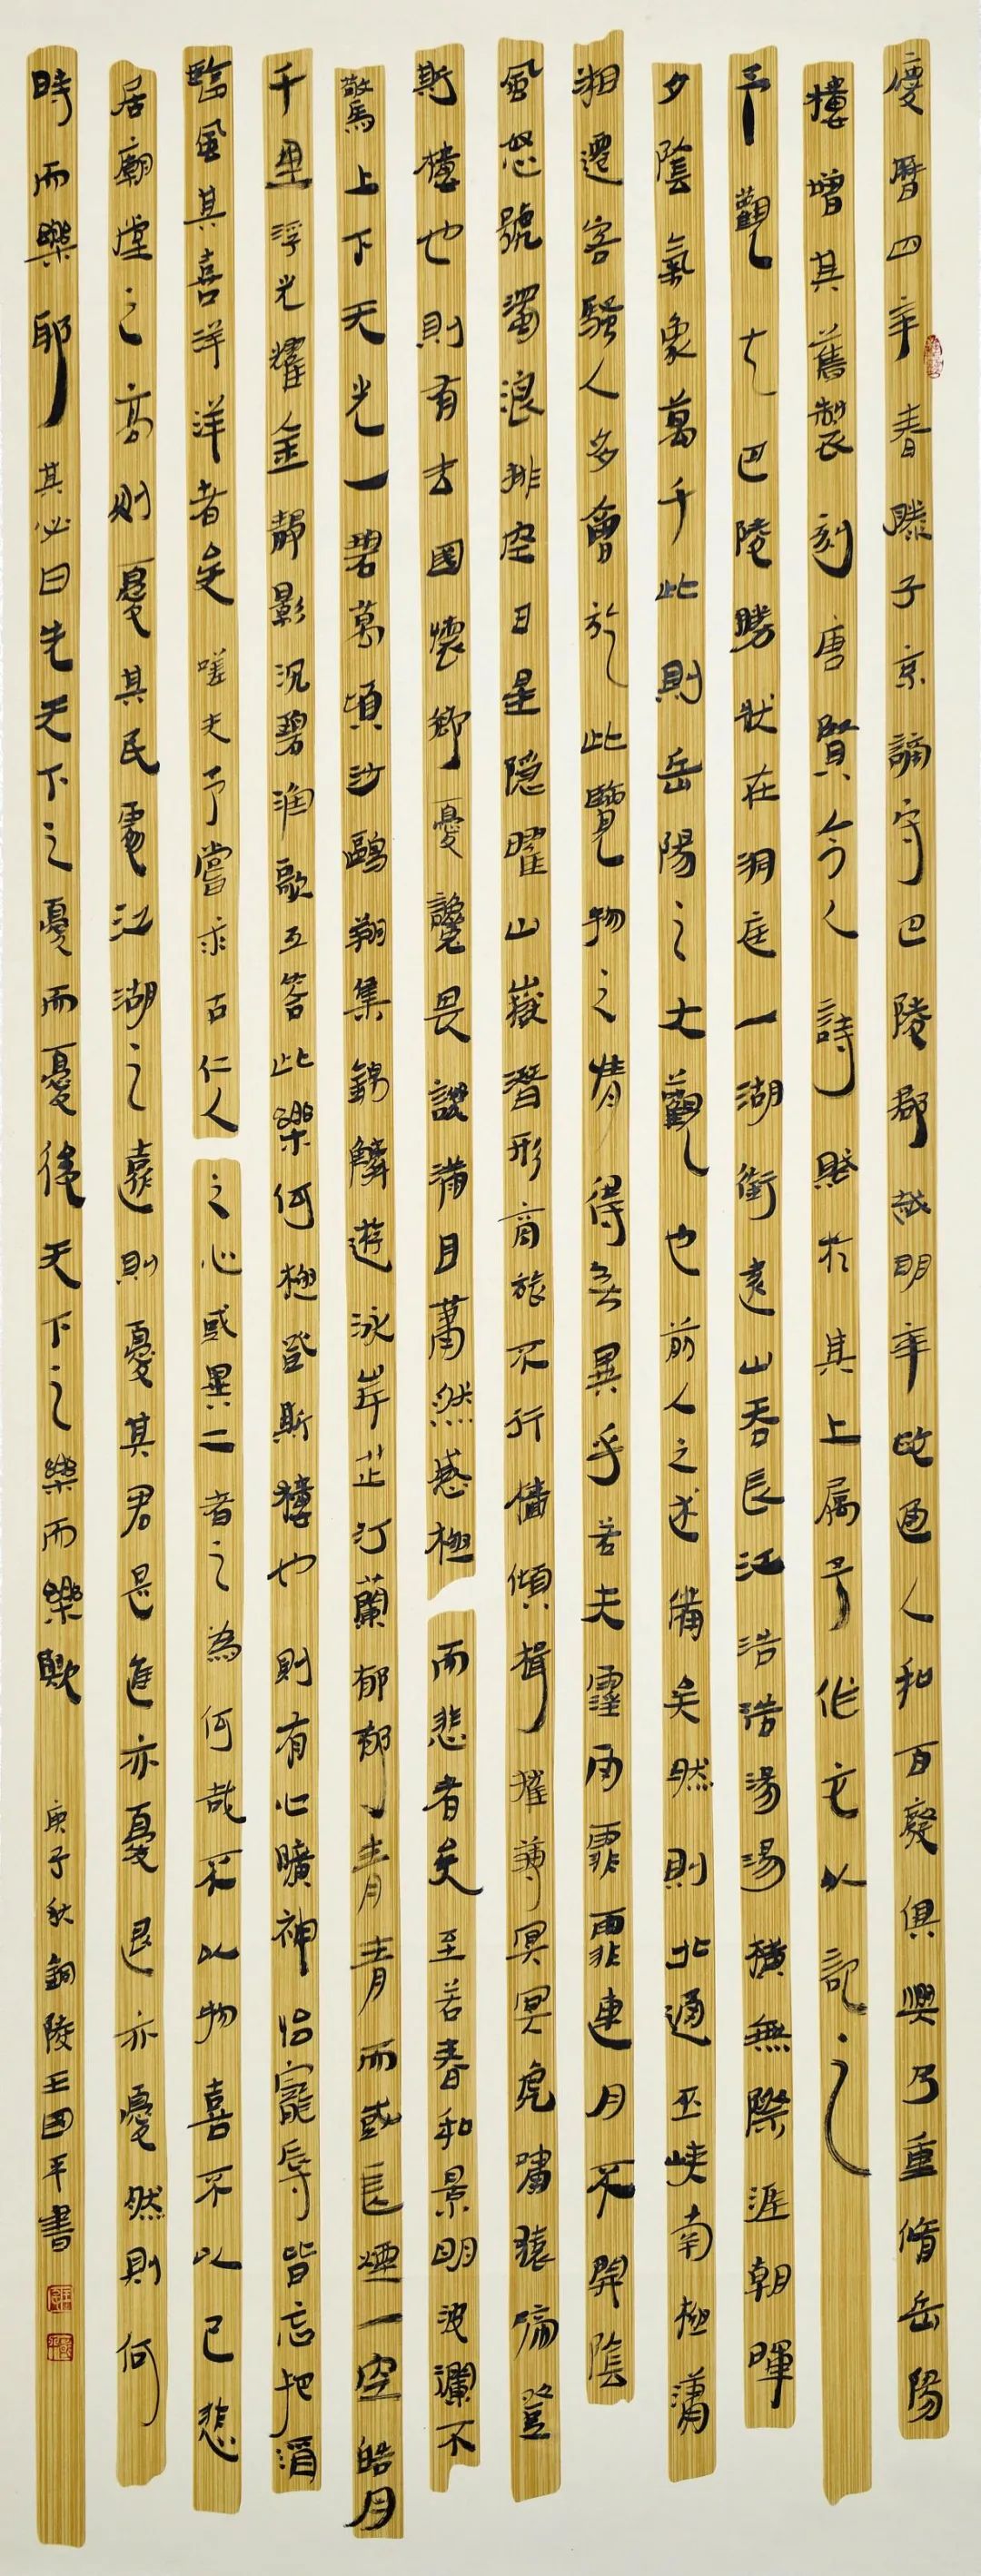 慶曆四年春滕子京謫守巴陵郡越明年政通人和百廢俱興乃重脩岳陽
樓增其舊製刻唐賢今人詩賦於其上属予作文以記之
予觀夫巴陵勝狀在洞庭一湖銜遠山吞長江浩浩湯湯橫無際涯朝暉
夕陰氣象萬千此則岳陽之大觀也前人之述備矣然則北通巫峽南極瀟
湘遷客騷人多會於此覽物之情得無異乎若夫霪雨霏霏連月不開陰
風怒號濁浪排空日星隱曜山嶽潛形商旅不行檣傾楫摧薄冥冥虎嘯猿啼登
斯樓也則有去國懷鄉憂讒畏譏滿目蕭然感極而悲者矣至若春和景明波瀾不
驚上下天光一碧萬頃沙鷗翔集錦鱗遊泳岸芷汀蘭郁郁青青而或長煙一空皓月
千里浮光耀金靜影沉碧漁歌互答此樂何極登斯樓也則有心曠神怡寵辱皆忘把酒
臨風其喜洋洋者矣嗟夫予嘗求古仁人之心或異二者之為何哉不以物喜不以己悲
居廟堂之高則憂其民處江湖之遠則憂其君是進亦憂退亦憂然則何
時而樂耶其必曰先天下之憂而憂後天下之樂而樂歟
庚子秋銅陵王國平書